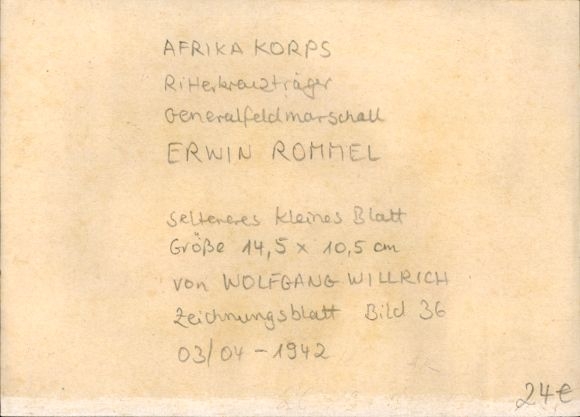 AFRIKA KORPS
Ritterkreuzträger
Generalfeldmarschall
ERWIN ROMMEL
selteneres kleines Blatt
Größe 14,5 x 10,5 cm
von WOLFGANG WILLRICH
Zeichnungsblatt Bild 36
03/04 - 1942
24€